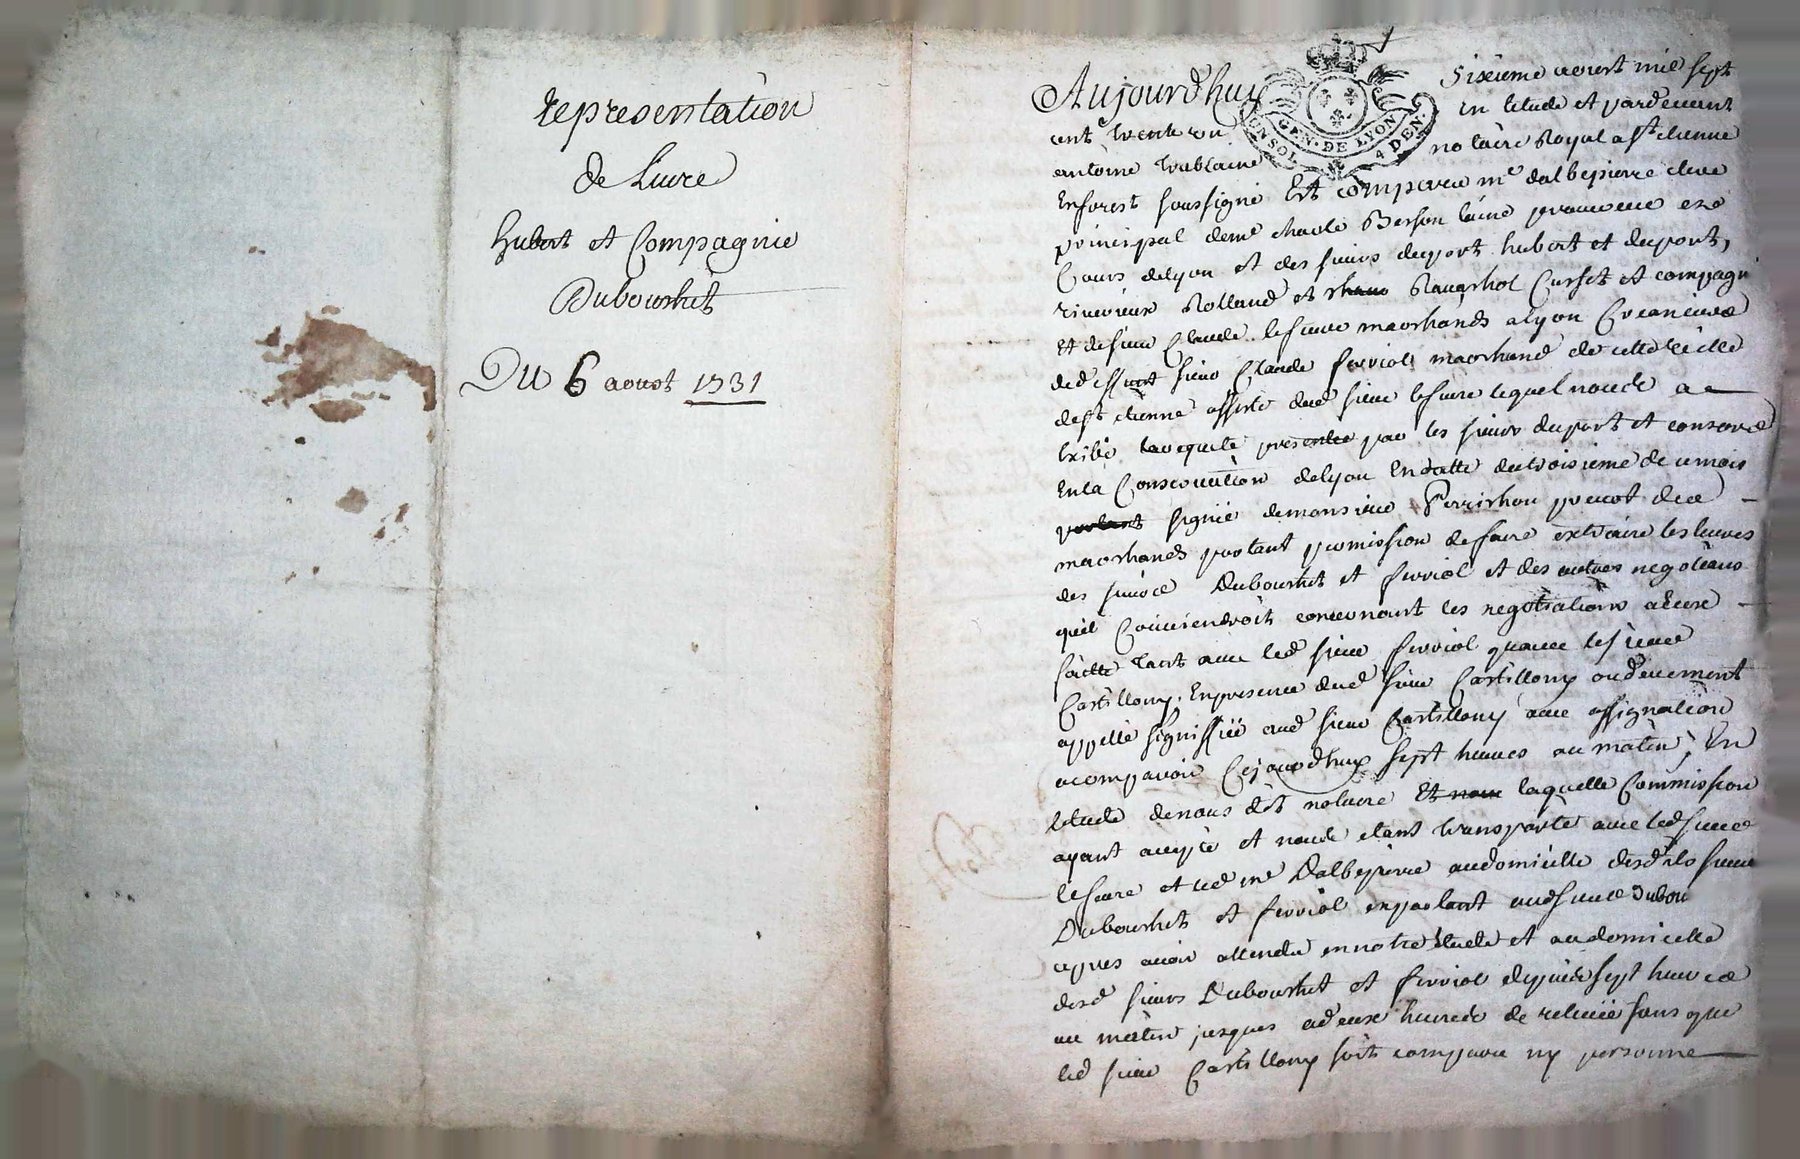 representation
de Livre
hubert et Compagnie
Dubouchet
Du 6 aoust 1731
Aujourdhuy sixieme aoust mil sept
cent trente un en letude et pardevant
GEN. DE LYON
UN SOL 4 DEN.
antoine trablaine notaire Royal a st etienne
En forest soussigné Est comparu me dalbepierre clerc
principal de me charle Berson laîné procureur es
Cours de lyon et des sieurs duport hubert et duport,
Rolland et Cusset et compagn
Et de sieur Claude lefevre marchands a lyon Creanciers
sieur Claude ferriol marchand de cette ville
de st etienne assisté dud sieur lefevre lequel nous a
Exibé requete presentée par les sieurs duport et
En la Conservation de lyon En datte du troisieme de ce mois
signée de monsieur Perrichon prevot des
marchands portant permission de faire extraire les livres
des sieurs Dubouchet et ferriol et des autres negotians
quil Conviendroit concernant les negotiations
faitte tant avec led sieur ferriol quavec le sieur
Castillony, En presence dud sieur Castillony ou duement
appellé signiffiée aud sieur Castillony avec assignation
a comparoir Cejourdhuy sept heures au matin, En
letude de nous dit notaire laquelle Commission
ayant accepté et nous etant transporté avec led sieur
lefevre et led me Dalbepierre au domicille desdits sieurs
Dubouchet et ferriol en parlant aud sieur Dubou
apres avoir attendu en notre Etude et au domicille
desd sieurs Dubouchet et ferriol depuis sept heures
au matin jusques a deux heures de relevée sans que
led sieur Castillony soit comparu ny personne